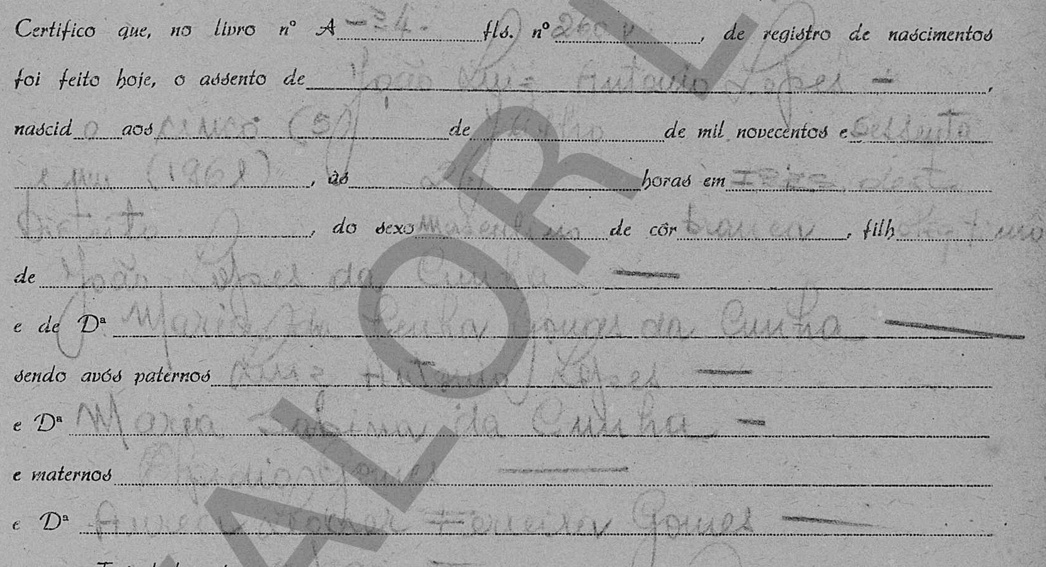 Certifico que, no livro nº A -24. fls. nº 260 v, de registro de nascimentos
foi feito hoje, o assento de João Luiz Antonio Lopes -,
nascido aos cinco (5) de de mil novecentos e sessenta
e um (1961), às horas em deste
Distrito, do sexo masculino de côr branca, filho legitimo
de João Lopes da Cunha
e de Dª Maria da Penha Gomes da Cunha
sendo avós paternos Luiz Antonio Lopes
e Dª Maria Sabina da Cunha
e maternos Gomes
e Dª Aurea Ferreira Gomes
VALOR L